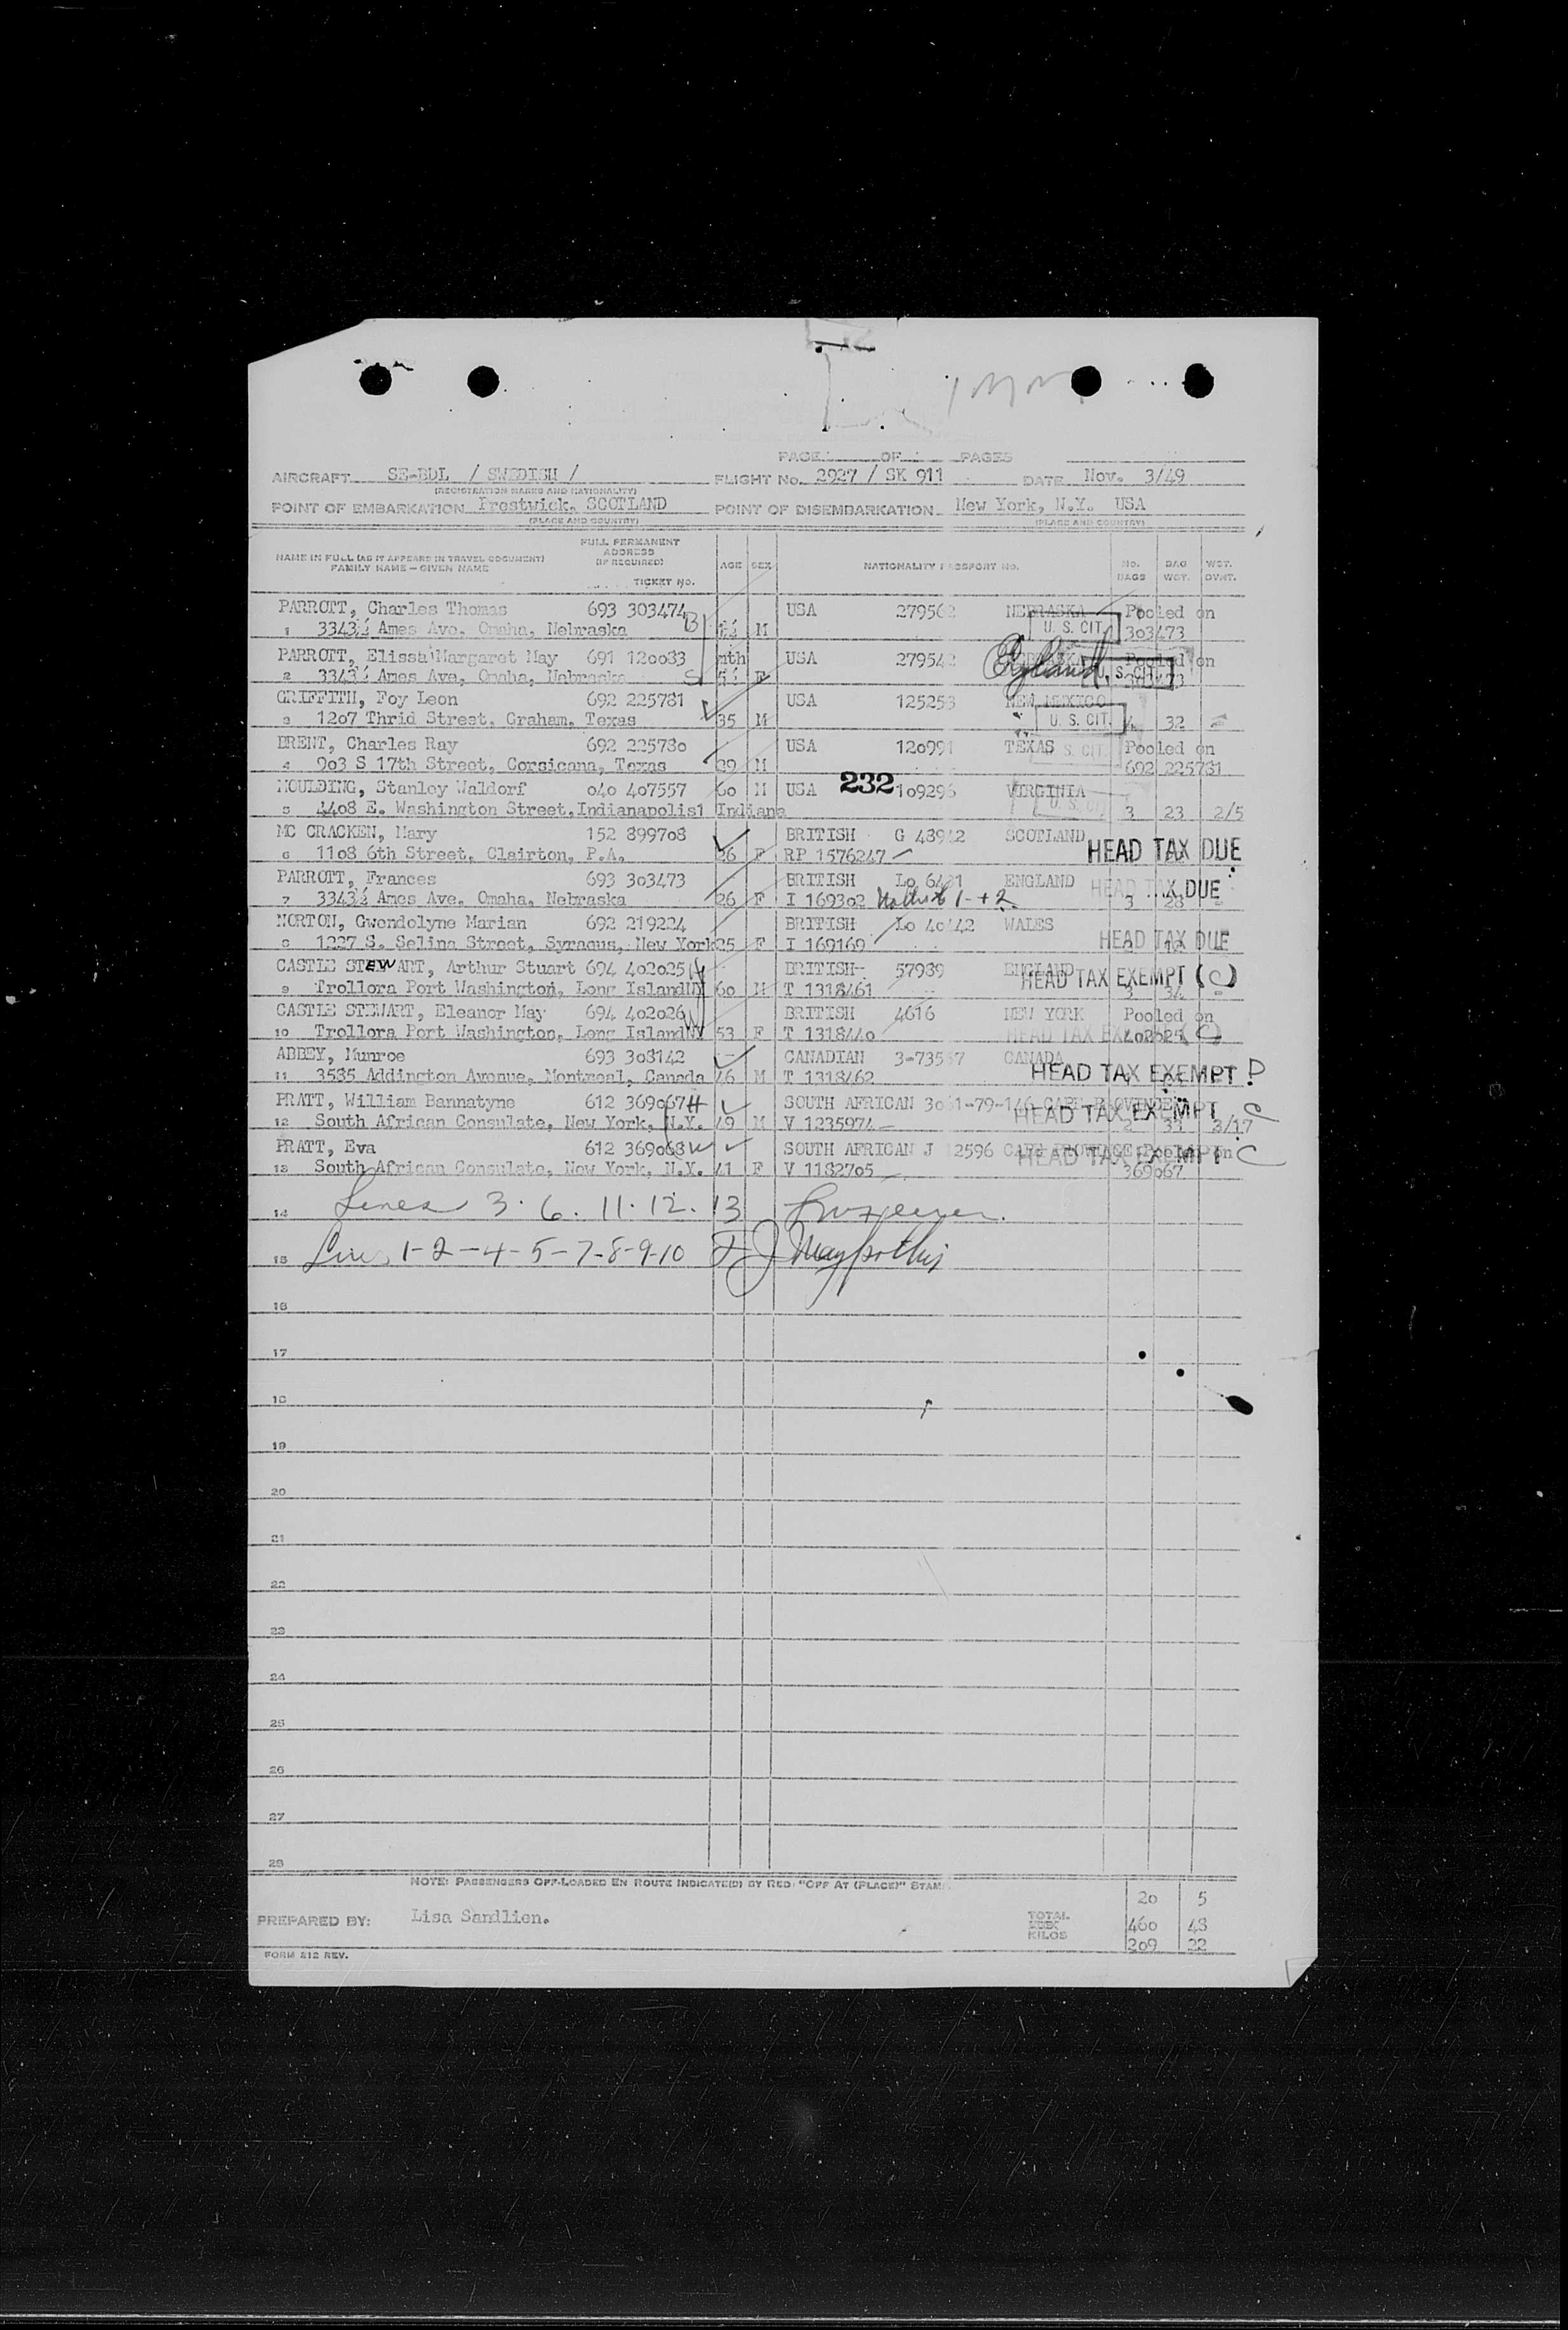 PAGE OF PAGES
AIRCRAFT SE-BDL / SWEDISH / FLIGHT No. 2927 / SK 911 DATE Nov. 3/49
(REGISTRATION MARKS AND NATIONALITY)
POINT OF EMBARKATION Prestwick, SCOTLAND POINT OF DISEMBARKATION New York, N.Y. USA
(PLACE AND COUNTRY) (PLACE AND COUNTRY)
NAME IN FULL (AS IT APPEARS IN TRAVEL DOCUMENT) FAMILY NAME — GIVEN NAME FULL PERMANENT ADDRESS (IF REQUIRED) TICKET NO. AGE SEX NATIONALITY PASSPORT NO. NO. BAGS BAG WGT. WGT. OVWT.
PARROTT, Charles Thomas 693 303474 USA 279562 NEBRASKA Pooled on
1 3343½ Ames Ave. Omaha, Nebraska M U. S. CIT. 303473
PARROTT, Elissa Margaret May 691 120083 mth USA 279542 England Pooled on
2 3343½ Ames Ave, Omaha, Nebraska F U. S. CIT.
GRIFFITH, Foy Leon 692 225781 USA 125253 NEW MEXICO
3 1207 Thrid Street, Graham, Texas 35 M U. S. CIT. 4 32
BRENT, Charles Ray 692 225780 USA 120991 TEXAS U. S. CIT. Pooled on
4 903 S 17th Street, Corsicana, Texas 29 M 692 225781
MOULDING, Stanley Waldorf 040 407557 60 M USA 232 109296 VIRGINIA
5 4408 E. Washington Street, Indianapolis1 Indiana U. S. CIT. 3 23 2/5
MC CRACKEN, Mary 152 899708 BRITISH G 48942 SCOTLAND
6 1108 6th Street, Clairton, P.A. 26 F RP 1576247 HEAD TAX DUE
PARROTT, Frances 693 303473 BRITISH Lo 6421 ENGLAND HEAD TAX DUE
7 3343½ Ames Ave. Omaha, Nebraska 26 F I 169302 Mother 1-+2 3 28
NORTON, Gwendolyne Marian 692 219224 BRITISH Lo 40142 WALES
8 1227 S. Selina Street, Syracus, New York 25 F I 169169 HEAD TAX DUE
CASTLE STEWART, Arthur Stuart 694 402025 H BRITISH 57989 ENGLAND
9 Trollora Port Washington, Long Island NY 60 M T 1318461 HEAD TAX EXEMPT (C) 3 34
CASTLE STEWART, Eleanor May 694 402026 W BRITISH 4616 NEW YORK Pooled on
10 Trollora Port Washington, Long Island NY 53 F T 1318440 HEAD TAX EXEMPT (C) 402025
ABBEY, Munroe 693 308142 CANADIAN 3-73557 CANADA
11 3585 Addington Avenue, Montreal, Canada 46 M T 1318462 HEAD TAX EXEMPT P
PRATT, William Bannatyne 612 369067 H SOUTH AFRICAN 3061-79-146 CAPE PROVINCE
12 South African Consulate, New York, N.Y. 49 M V 1235974 HEAD TAX EXEMPT C 2 3/17
PRATT, Eva 612 369068 W SOUTH AFRICAN J 12596 CAPE PROVINCE Pooled on
13 South African Consulate, New York, N.Y. 41 F V 1182705 HEAD TAX EXEMPT C 369067
14 Lines 3. 6. 11. 12. 13
15 Lines 1-2-4-5-7-8-9-10
16
17
18
19
20
21
22
23
24
25
26
27
28
NOTE: PASSENGERS OFF-LOADED EN ROUTE INDICATE(D) BY RED "OFF AT (PLACE)" STAMP
20 5
PREPARED BY: Lisa Sandlien. TOTAL 460 48
KILOS 209 22
FORM 212 REV.